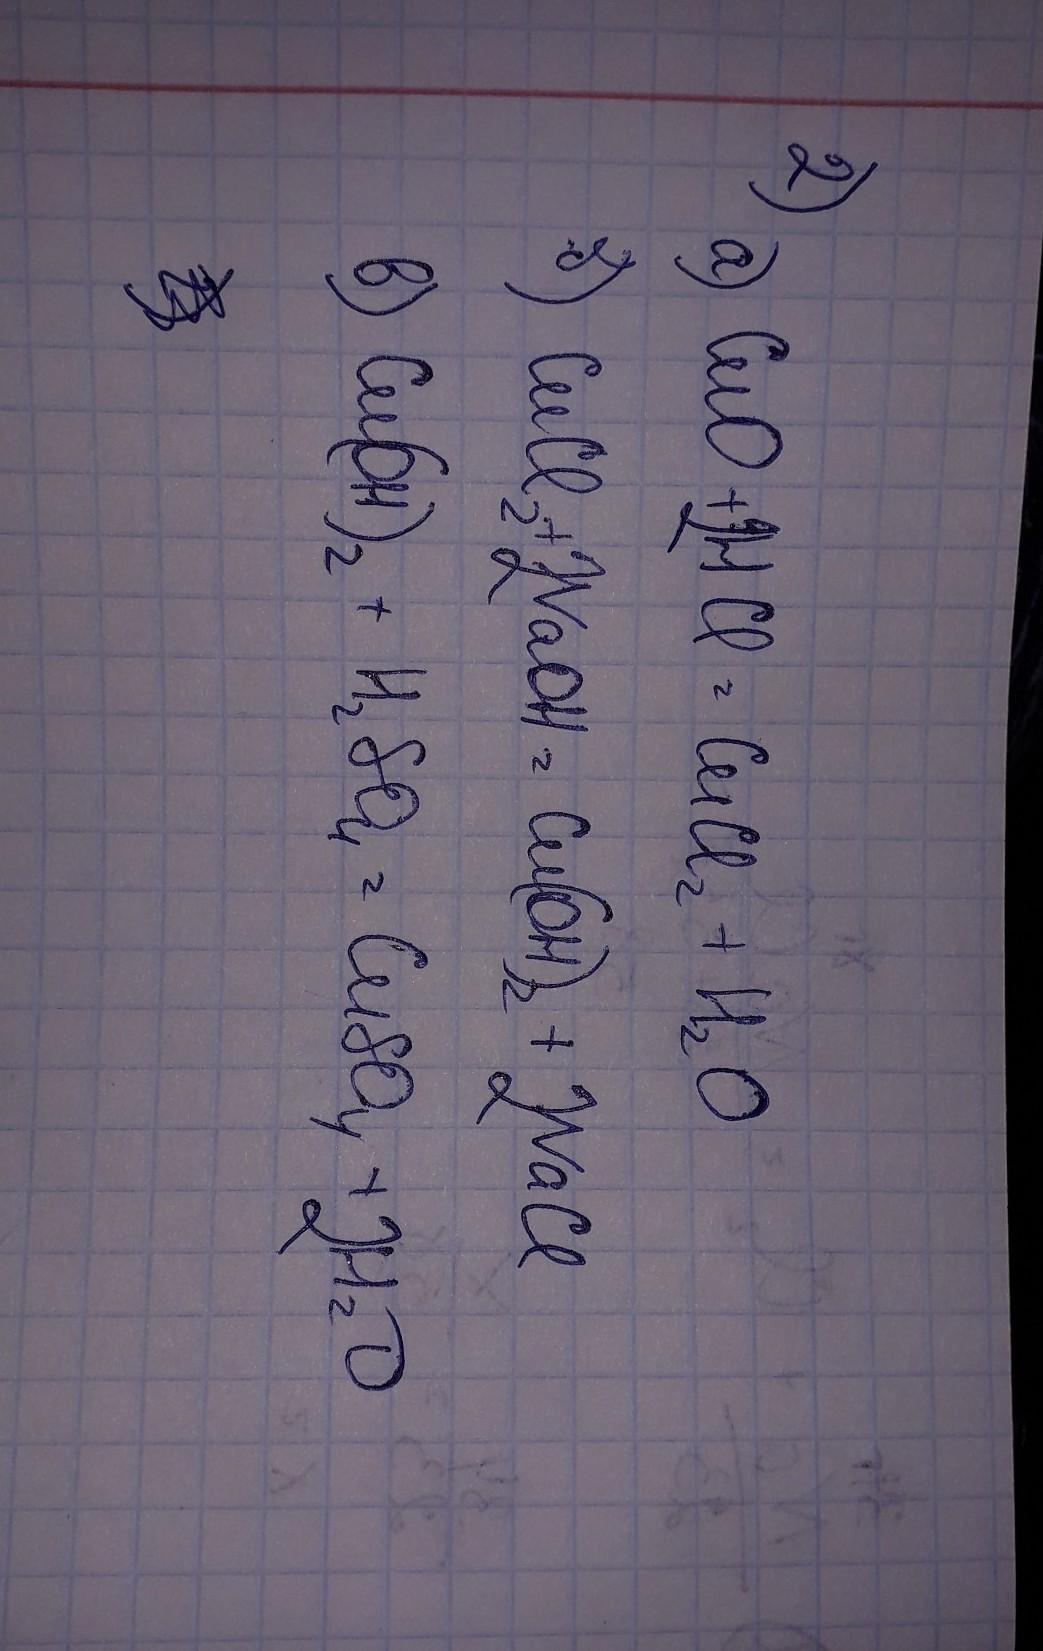 2) a) CuO + 2HCl = CuCl₂ + H₂O
б) CuCl₂ + 2NaOH = Cu(OH)₂ + 2NaCl
в) Cu(OH)₂ + H₂SO₄ = CuSO₄ + 2H₂O